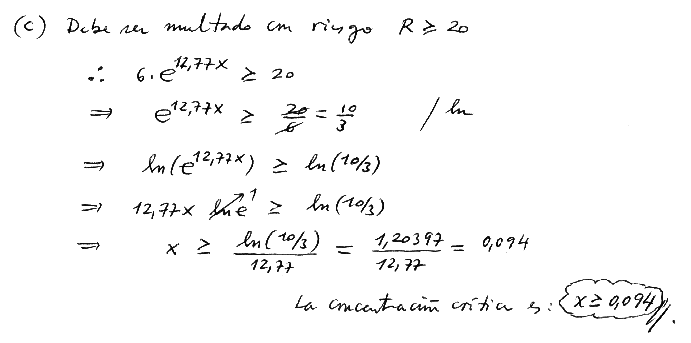 (c) Debe ser multado con riesgo R ≥ 20
∴ 6·e^{12,77x} ≥ 20
⇒ e^{12,77x} ≥ 20/6 = 10/3 / ln
⇒ ln(e^{12,77x}) ≥ ln(10/3)
⇒ 12,77x ln e^1 ≥ ln(10/3)
⇒ x ≥ ln(10/3)/12,77 = 1,20397/12,77 = 0,094
La concentración crítica es: x ≥ 0,094 //.